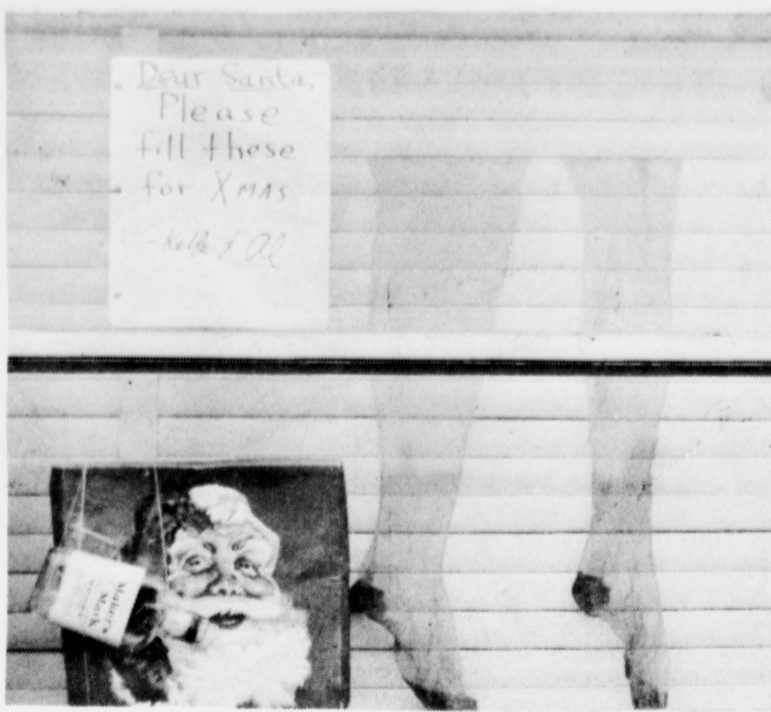 Dear Santa,
Please
fill these
for XMAS
& Al
Maker's
Mark